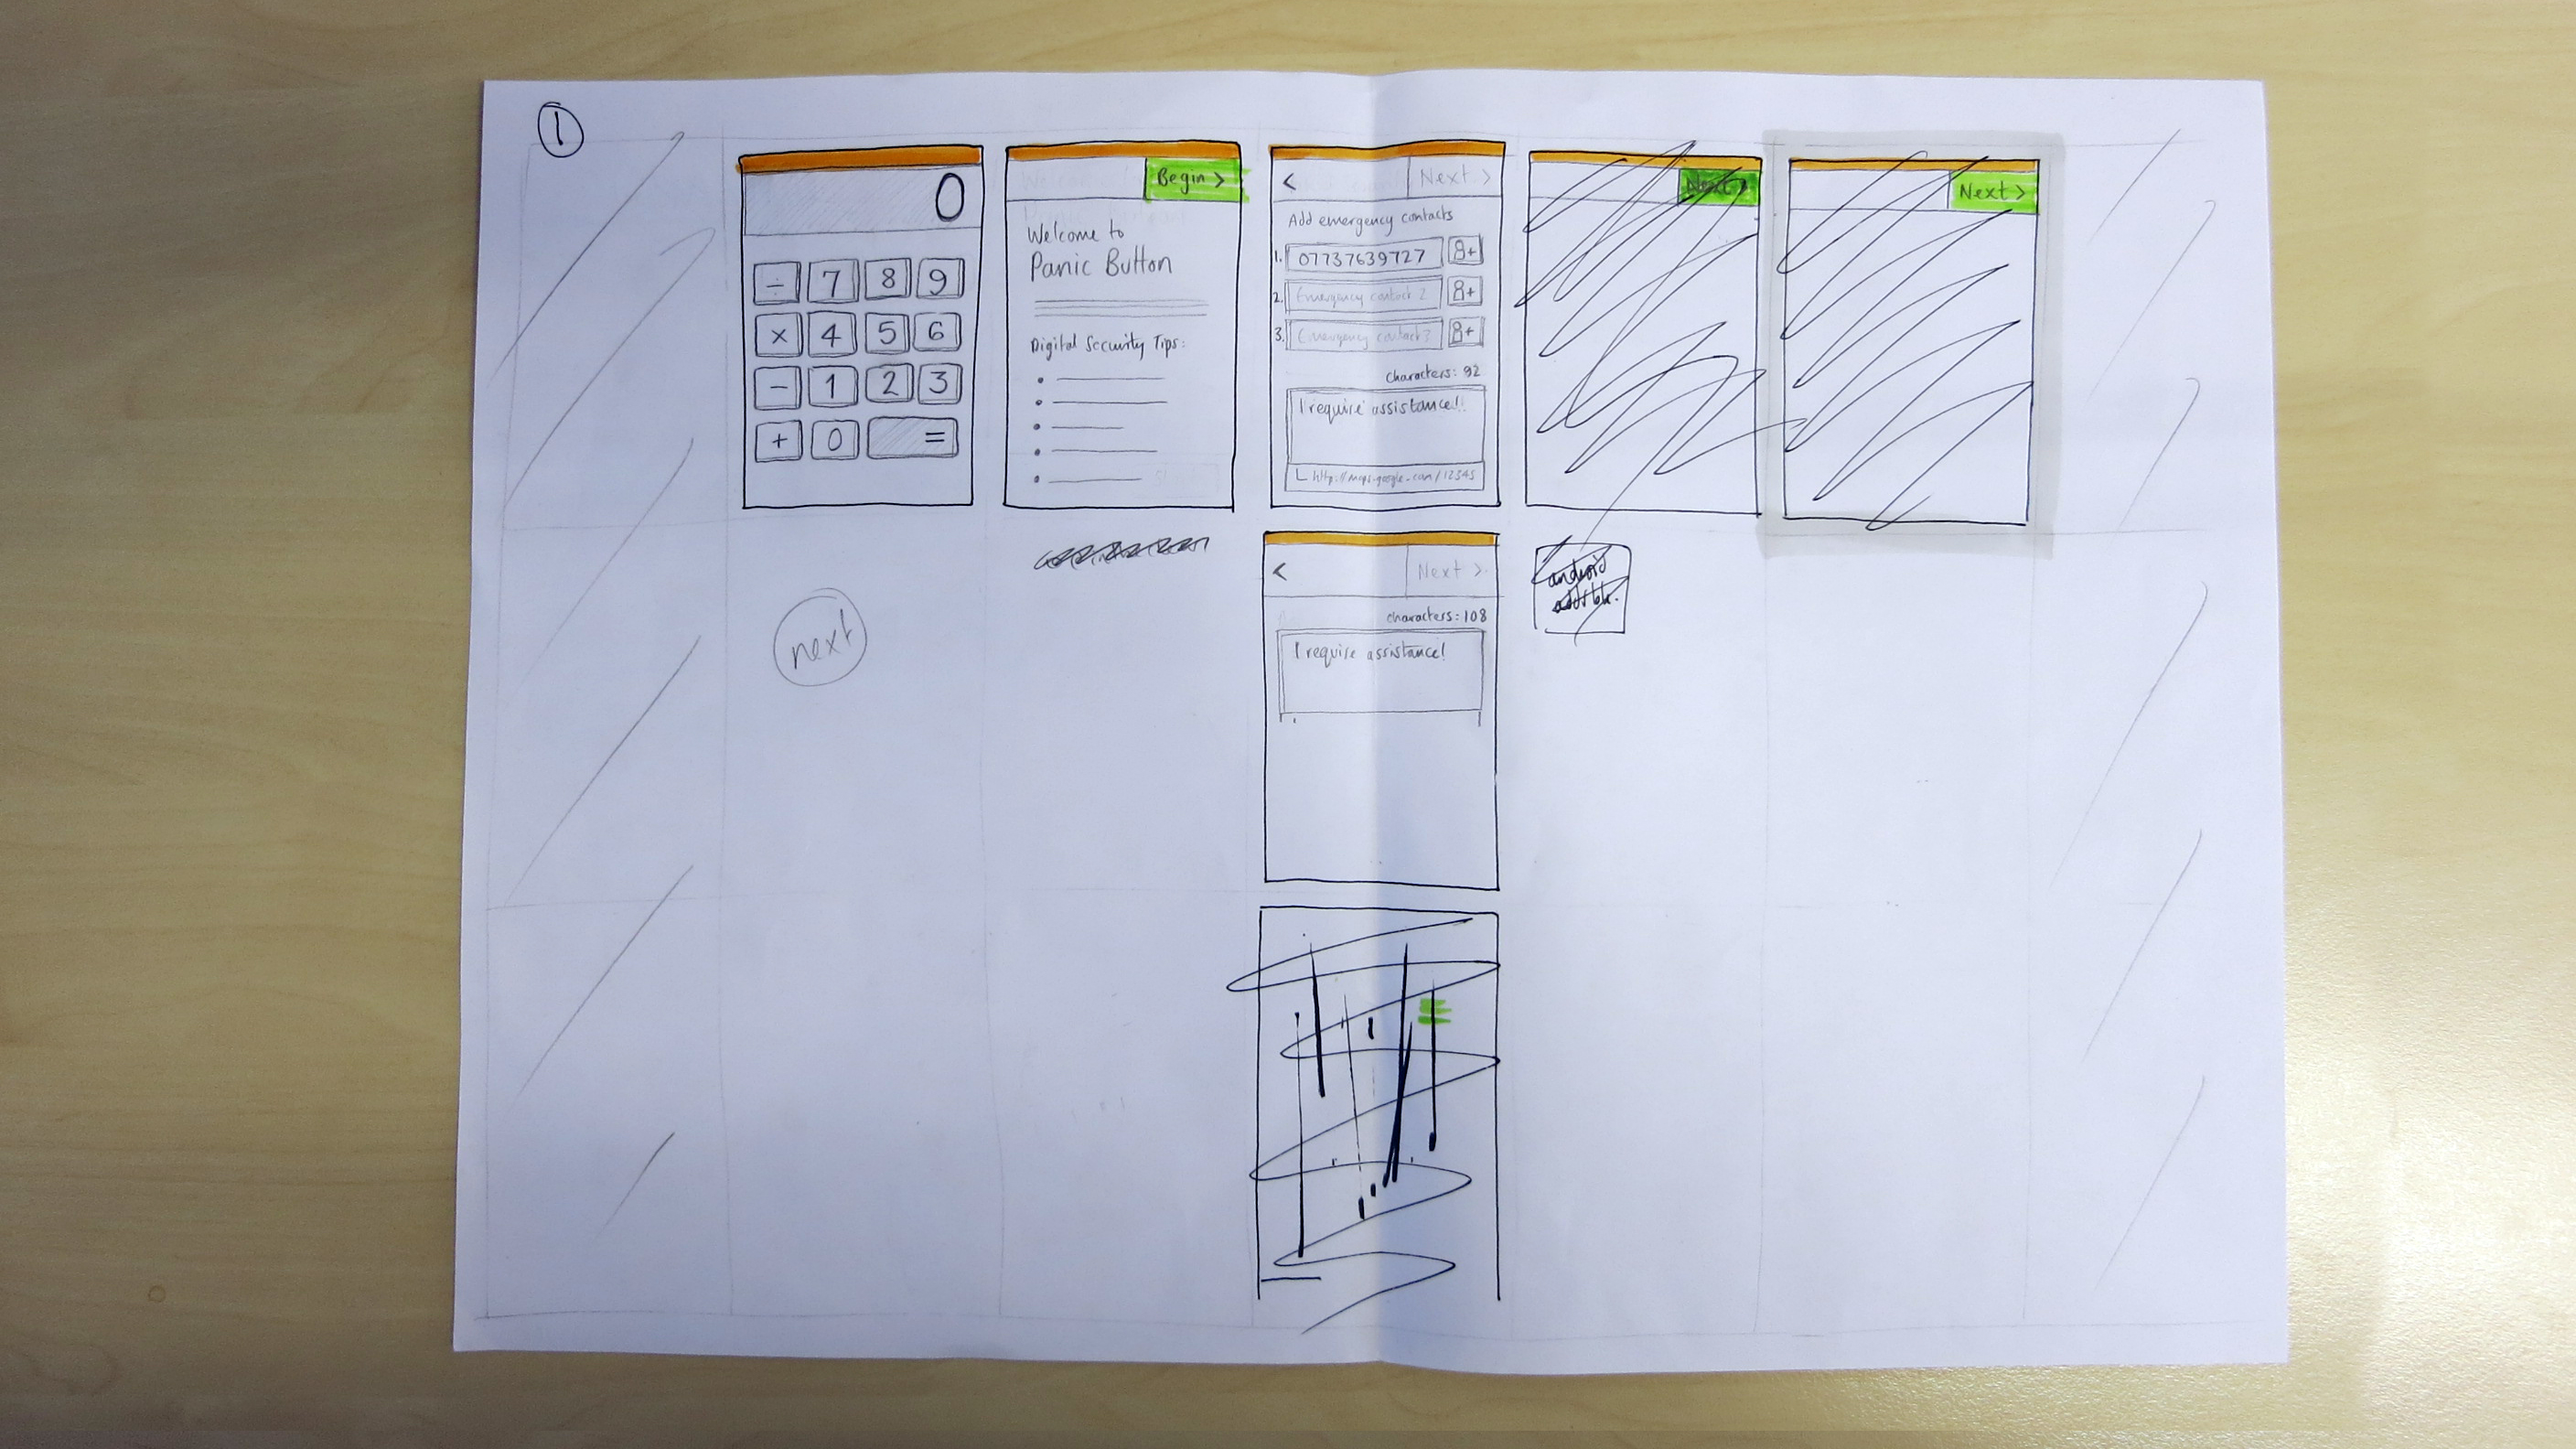 1
0
÷ 7 8 9
× 4 5 6
- 1 2 3
+ 0 =
Begin >
Welcome to
Panic Button
Digital Security Tips:
< Next >
Add emergency contacts
1. 07737639727 8+
2. Emergency contact 2 8+
3. Emergency contact 3 8+
characters: 92
I require assistance!
http://maps.google.com/12345
Next >
Next >
next
< Next >
characters: 108
I require assistance!
android